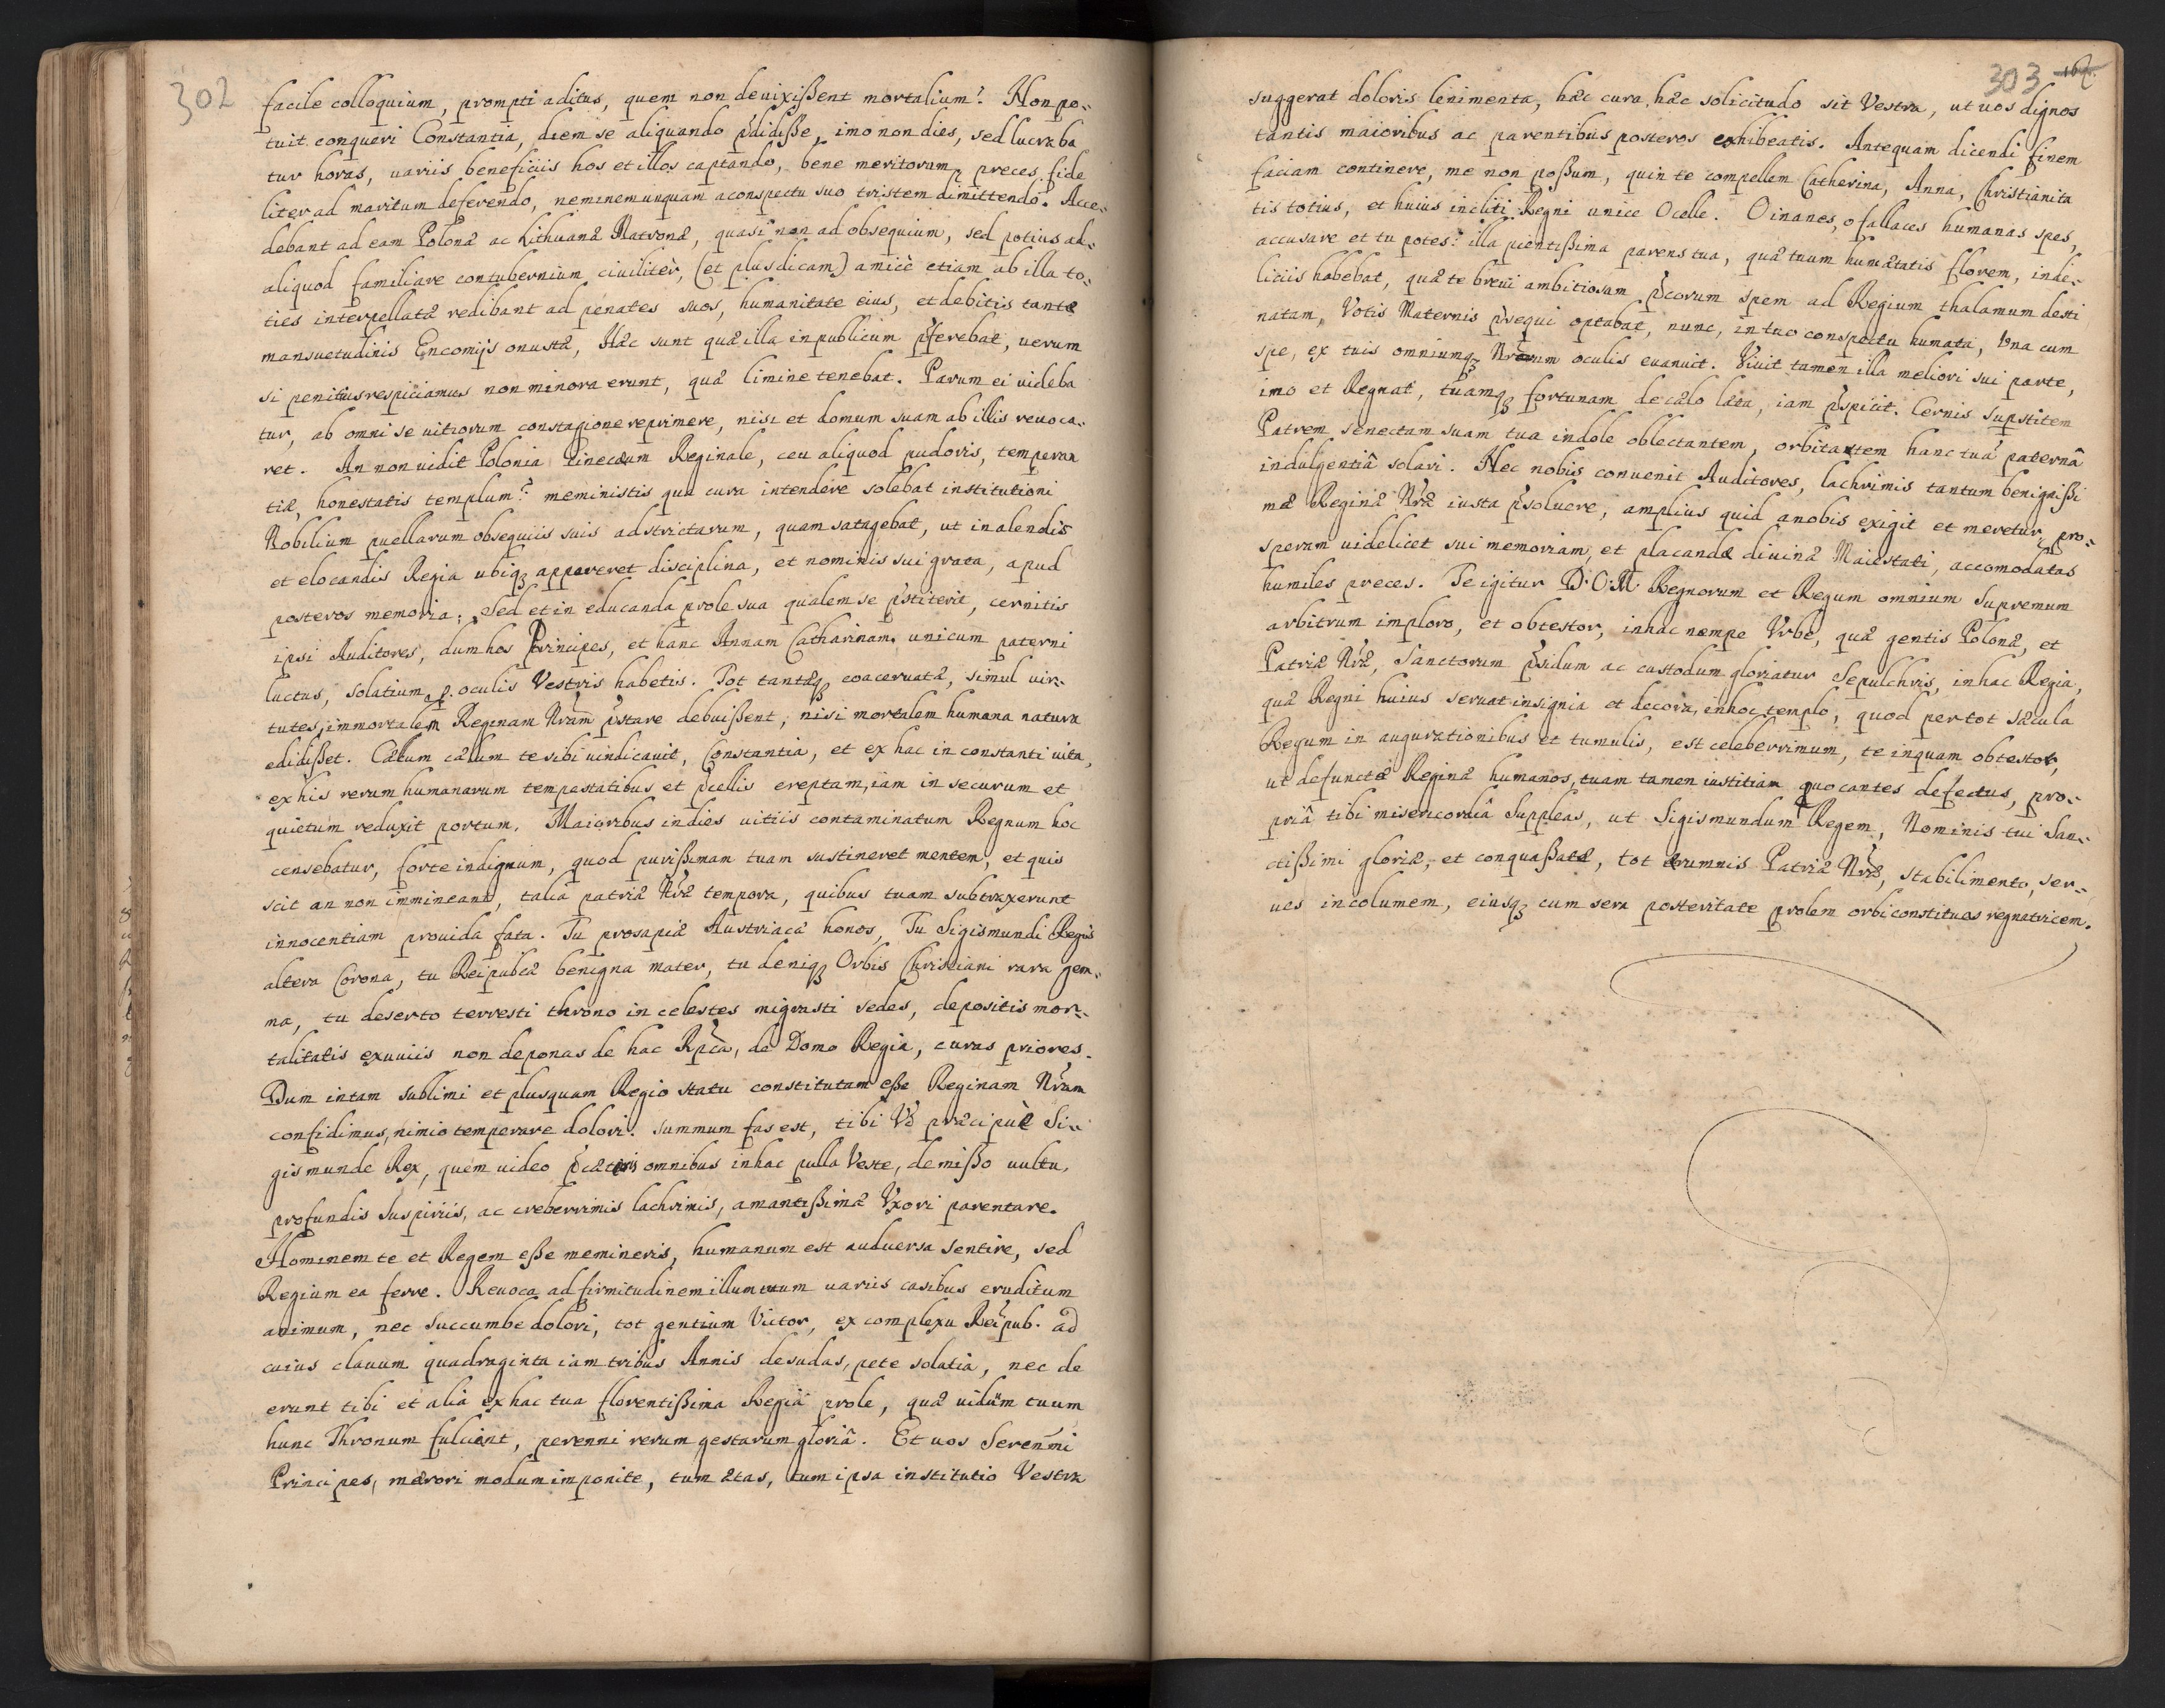 302
facile colloquium, prompti aditus, quem non deuixißent mortalium? Non po-
tuit conqueri Constantia, diem se aliquando pdidiße, imo non dies, sed lucraba
tur horas, uariis beneficiis hos et illos captando, bene meritorum preces fide
liter ad maritum deferendo, neminem unquam a conspectu suo tristem dimittendo. Acce-
debant ad eam Polonæ ac Lithuanæ Matronæ, quasi non ad obsequium, sed potius ad-
aliquod familiare contubernium ciuilitèr, (et plus dicam) amicè etiam ab illa to-
ties interpellatæ redibant ad penates suos, humanitate eius, et debitis tantæ
mansuetudinis Encomijs onustæ, Hæc sunt quæ illa in publicum pferebat, uerum
si penitus respiciamus non minora erunt, quæ limine tenebat. Parum ei uideba
tur, ab omni se uitiorum constagione reprimere, nisi et domum suam ab illis reuoca-
ret. An non uidit Polonia Ginecæum Reginale, ceu aliquod pudoris, temperan
tiæ, honestatis templum? meministis qua cura intendere solebat institutioni
Nobilium puellarum obsequiis suis adstrictarum, quam satagebat, ut in alendis
et elocandis Regia ubiqz appareret disciplina, et nominis sui grata, apud
posteros memoria. Sed et in educanda prole sua qualem se pstiterit, cernitis
ipsi Auditores, dum hos Principes, et hanc Annam Catharinam unicum paterni
luctus, solatium, p. oculis Vestris habetis. Tot tantæqz coaceruatæ, simul uir-
tutes, immortalem Reginam Nram pstare debuißent, nisi mortalem humana natura
edidißet. Cælum cælum te sibi uindicauit, Constantia, et ex hac in constanti uita,
ex his rerum humanarum tempestatibus et pcellis ereptam, iam in securum et
quietum reduxit portum. Maioribus indies uitiis contaminatum Regnum hoc
censebatur, forte indignum, quod purißimam tuam sustineret mentem, et quis
scit an non immineant, talia patriæ Nræ tempora, quibus tuam subtraxerunt
innocentiam prouida fata. Tu prosapiæ Austriacæ honos, Tu Sigismundi Regis
altera Corona, tu Reipubcæ benigna mater, tu deniqz Orbis Christiani rara gem-
ma, tu deserto terresti throno in celestes migrasti sedes, depositis mor-
talitatis exuuiis non deponas de hac Rpca, de Domo Regia, curas priores.
Dum in tam sublimi et plusquam Regio statu constitutam eße Reginam Nram
confidimus, nimio temperare dolori summum fas est, tibi Vo præcipuè Si-
gismunde Rex, quem uideo omnibus in hac pulla Veste, demißo uultu,
profundis suspiriis, ac creberrimis lachrimis, amantißimæ Vxori parentare.
Hominem te et Regem eße memineris, humanum est auduersa sentire, sed
Regium ea ferre. Reuoca ad firmitudinem illum tuum uariis casibus eruditum
animum, nec succumbe dolori, tot gentium Victor, ex complexu Reipub. ad
cuius clauum quadraginta iam tribus Annis desudas, pete solatia, nec de
erunt tibi et alia ex hac tua florentißima Regia prole, quæ uiduum tuum
hunc Thronum fulcient, perenni rerum gestarum gloriâ. Et uos Serenmi
Principes, mærori modum imponite, tum ætas, tum ipsa institutio Vestra
303
suggerat doloris lenimenta, hæc cura, hæc solicitudo sit Vestra, ut uos dignos
tantis maioribus ac parentibus posteros exhibeatis. Antequam dicendi finem
faciam continere, me non poßum, quin te compellem Catherina, Anna, Christianita
tis totius, et huius incliti Regni unice Ocelle. O inanes, o fallaces humanas spes,
accusare et tu potes: illa pientißima parens tua, quæ tuum humætatis florem, inde-
liciis habebat, quæ te breui ambitiosam pcorum spem ad Regium thalamum desti
natam, Votis Maternis psequi optabat, nunc, in tuo conspectu humata, Vna cum
spe, ex tuis omniumqz Nrorum oculis euanuit. Viuit tamen illa meliori sui parte,
imo et Regnat, tuamqz fortunam de cælo læta, iam pspicit. Cernis supstitem
Patrem senectam suam tua indole oblectantem, orbitatem hanc tuâ paternâ
indulgentiâ solari. Nec nobis conuenit Auditores, lachrimis tantum benignißi
mæ Reginæ Nræ iusta psoluere, amplius quid a nobis exigit et meretur, pro-
speram uidelicet sui memoriam, et placandæ diuinæ Maiestati, accomodatas
humiles preces. Te igitur D.O.M. Regnorum et Regum omnium Supremum
arbitrum imploro, et obtestor, in hac nempe Vrbe, quæ gentis Polonæ, et
Patriæ Nræ, Sanctorum psidum ac custodum gloriatur Sepulchris, in hac Regia,
quæ Regni huius seruat insignia et decora, in hoc templo, quod per tot sæcula
Regum in augurationibus et tumulis, est celeberrimum, te inquam obtestor,
ut defunctæ Reginæ humanos, tuam tamen iustitiam quocantes defectus, pro-
priâ tibi misericordiâ suppleas, ut Sigismundum Regem, Nominis tui San-
ctißimi gloriæ, et conquaßatæ, tot ærumnis Patriæ Nræ, stabilimento, ser-
ues incolumem, eiusqz cum sera posteritate prolem orbi constituas regnatricem.